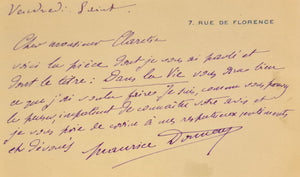 Vendredi Saint.
7. RUE DE FLORENCE
Cher monsieur Claretie
voici la pièce dont je vous ai parlé et
dont le titre : Dans la Vie vous dira bien
ce que j'ai voulu faire. Je suis, comme vous pouvez
le penser, impatient de connaître votre avis et
je vous prie de croire à mes respectueux sentiments
et dévoués
Maurice Donnay